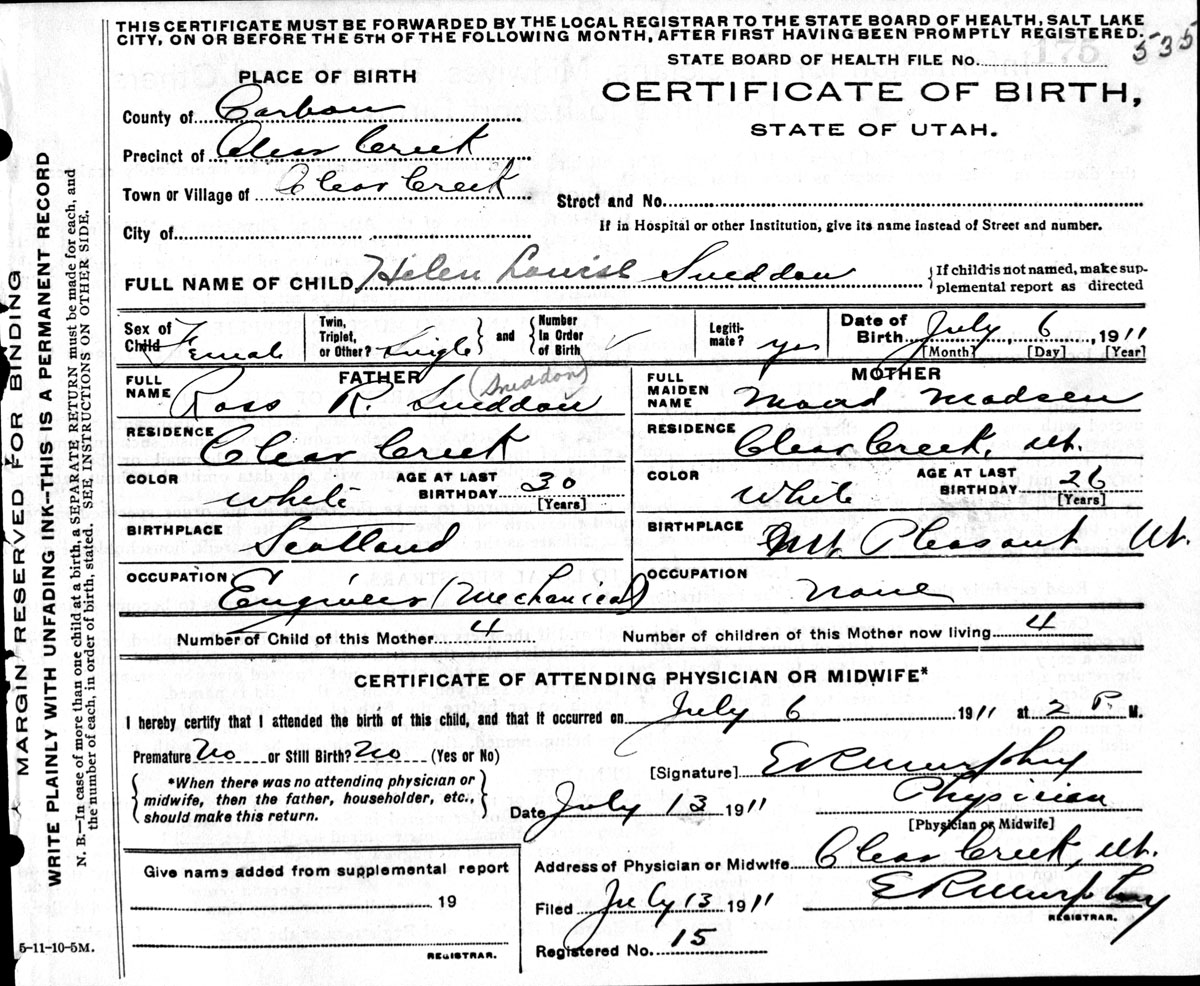 THIS CERTIFICATE MUST BE FORWARDED BY THE LOCAL REGISTRAR TO THE STATE BOARD OF HEALTH, SALT LAKE
CITY, ON OR BEFORE THE 5TH OF THE FOLLOWING MONTH, AFTER FIRST HAVING BEEN PROMPTLY REGISTERED.
STATE BOARD OF HEALTH FILE No. 175 535
PLACE OF BIRTH
CERTIFICATE OF BIRTH,
STATE OF UTAH.
County of Carbon
Precinct of Clear Creek
Town or Village of Clear Creek
Street and No.
City of
If in Hospital or other Institution, give its name instead of Street and number.
FULL NAME OF CHILD Helen Louise Sneddon {If child is not named, make sup-
plemental report as directed
Sex of Child Female
Twin, Triplet, or Other? Single } and { Number In Order of Birth
Legiti-mate? yes
Date of Birth July 6 1911
[Month] [Day] [Year]
FATHER
FULL NAME Ross R. Sneddon (Sneddon)
MOTHER
FULL MAIDEN NAME Maud Madsen
RESIDENCE Clear Creek
RESIDENCE Clear Creek, Ut.
COLOR White AGE AT LAST BIRTHDAY 30 [Years]
COLOR White AGE AT LAST BIRTHDAY 26 [Years]
BIRTHPLACE Scotland
BIRTHPLACE Mt. Pleasant Ut.
OCCUPATION Engineer (Mechanical)
OCCUPATION None
Number of Child of this Mother 4 Number of children of this Mother now living 4
CERTIFICATE OF ATTENDING PHYSICIAN OR MIDWIFE*
I hereby certify that I attended the birth of this child, and that it occurred on July 6 1911 at 2 P. M.
Premature No or Still Birth? No (Yes or No)
{ *When there was no attending physician or
midwife, then the father, householder, etc.,
should make this return. }
[Signature] E R Murphy
Date July 13 1911 Physician
[Physician or Midwife]
Address of Physician or Midwife Clear Creek, Ut.
Give name added from supplemental report
19
REGISTRAR.
Filed July 13 1911 E R Murphy
REGISTRAR.
Registered No. 15
MARGIN RESERVED FOR BINDING
WRITE PLAINLY WITH UNFADING INK--THIS IS A PERMANENT RECORD
N. B.—In case of more than one child at a birth, a SEPARATE RETURN must be made for each, and
the number of each, in order of birth, stated. SEE INSTRUCTIONS ON OTHER SIDE.
5-11-10-5M.